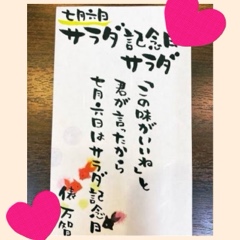 七月六日
サラダ記念日
サラダ
「この味がいいね」と
君が言ったから
七月六日はサラダ記念日
俵万智